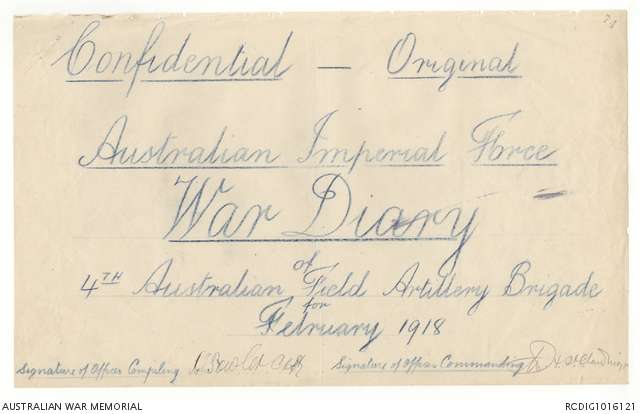 Confidential — Original
Australian Imperial Force
War Diary
of
4TH Australian Field Artillery Brigade
for
February 1918
Signature of Officer Compiling Signature of Officer Commanding
AUSTRALIAN WAR MEMORIAL RCDIG1016121